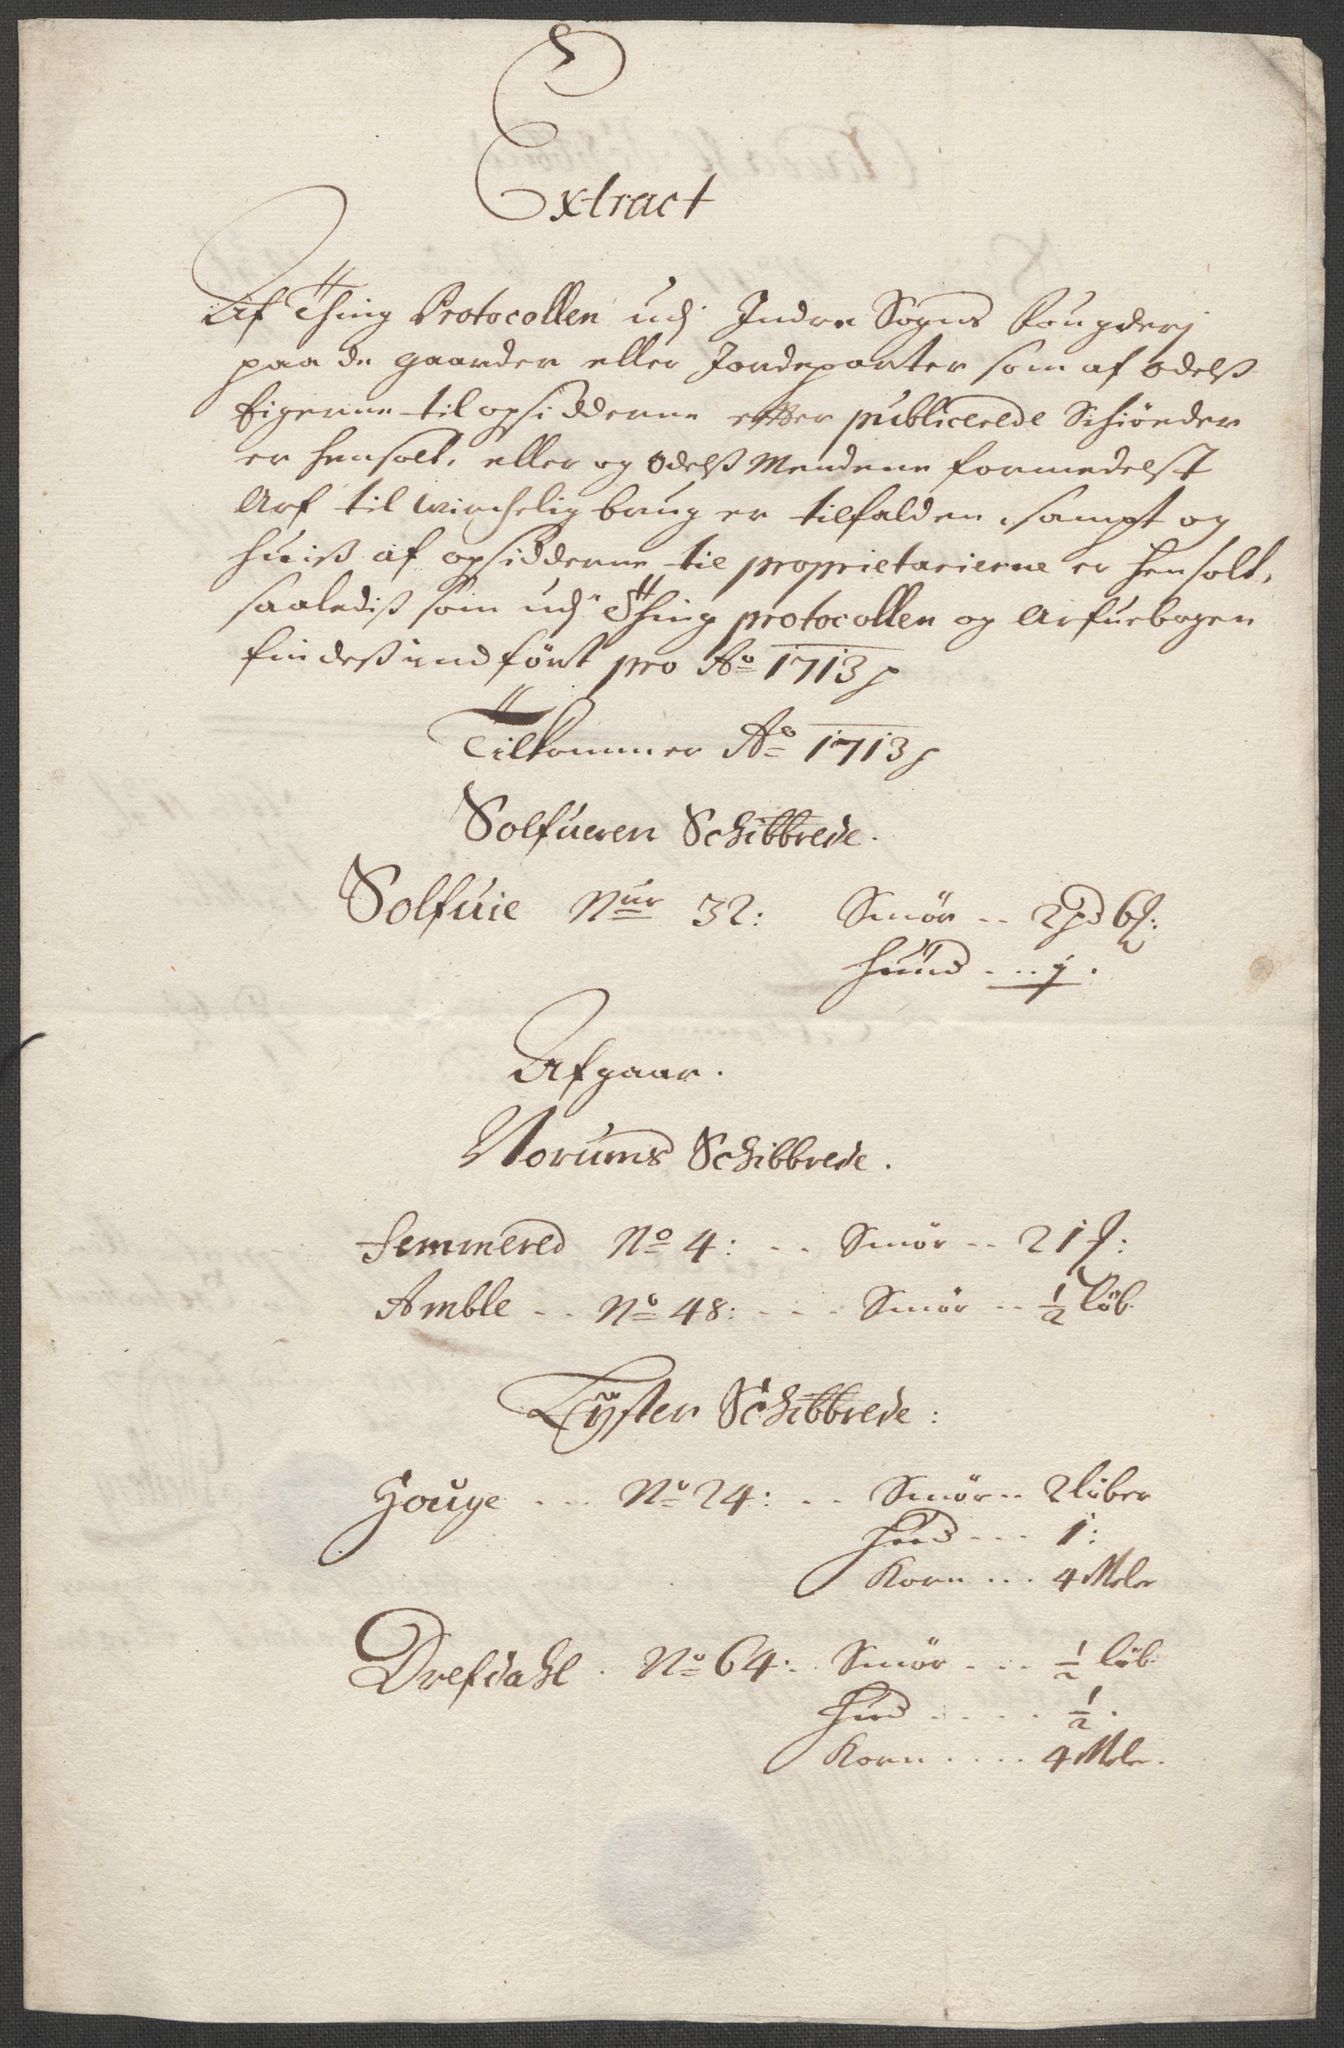 Extract
Af Thing Protocollen udj Indre Sogns Fougderj
paa de gaarder eller Jordeparter som af Odelß
Eigerne til opsidderne efter publicerede Schiøeder
er hensolt, eller og Odelß Mendene formedelst
Arf til wirchelig brug er tilfalden, sampt og
huiß af opsidderne til proprietarierne er hensolt,
saalediß som udj Thing protocollen og Arfuebogen
findeß indført pro Ao 1713
Tilkommer Ao 1713
Solfueren Schibbrede.
Solfuie Nur 32: Smør .. 2pd 6
Huud ... 1.
Afgaar.
Norums Schibbrede.
Femmered No 4: .. Smør .. 21
Amble .. No 48: ... Smør .. 1/2 løb
Lÿster Schibbrede:
Houge ... No 24: .. Smør .. 2 løber
Hud ... 1:
Korn ... 4 Meler
Drefdahl . No 64: . Smør ... 1/2 løb
Hud ..... 1/2.
Korn .... 4 Meler.